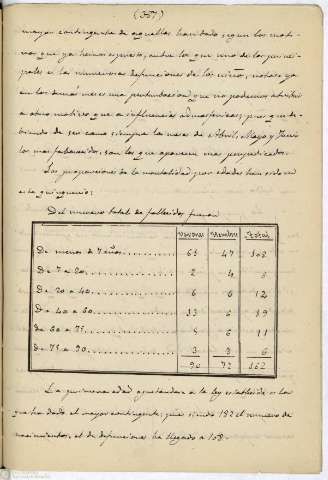 (357)
mayor contingente de aquellos han dado, segun los moti-
vos que ya hemos expuesto, entre los que uno de los princi-
pales es la numerosas defunciones de los niños, notase ya
en los demás meses una perturbacion que no podemos atribuir
a otro motivo que a influencias atmosfericas; pues que de-
biendo de ser como siempre los meses de Abril, Mayo y Junio
los mas favorecidos, son los que aparecen mas perjudicados.
Las proporciones de la mortalidad por edades han sido en
este quinquenio:
Del numero total de fallecidos fueron
Varones Hembras Total
De menos de 7 años 61 47 108
De 7 a 20 2 4 6
De 20 a 40 6 6 12
De 40 a 60 13 6 19
De 60 a 75 5 6 11
De 75 a 90 3 3 6
90 72 162
La primera edad ajustandose a la ley establecida es la
que ha dado el mayor contingente; pues siendo 182 el numero de
nacimientos, el de defunciones ha llegado a 108.